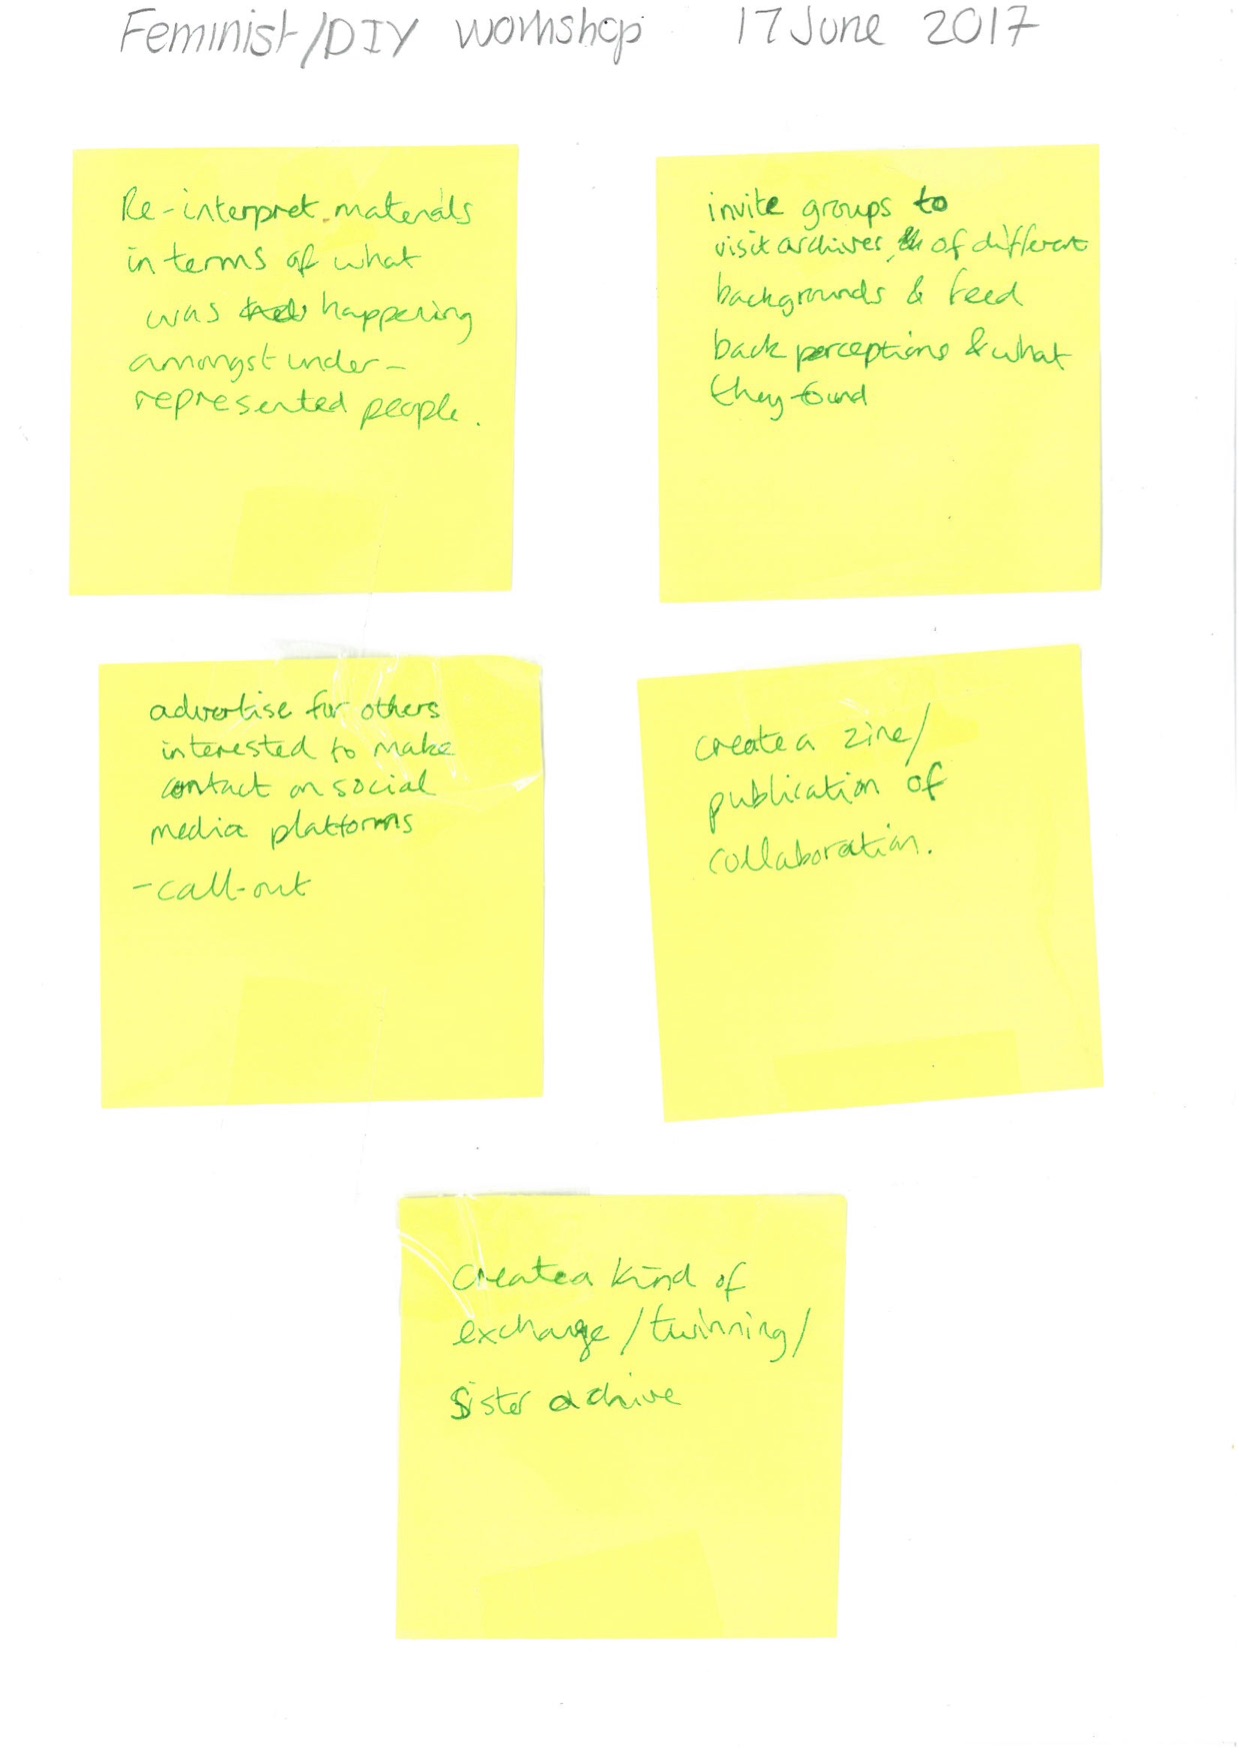 Feminist/DIY workshop 17 June 2017
Re-interpret materials
in terms of what
was happening
amongst under-
represented people.
invite groups to
visit archives, of different
backgrounds & feed
back perceptions & what
they found
advertise for others
interested to make
contact on social
media platforms
-call-out
create a zine/
publication of
collaboration.
create a kind of
exchange/twinning/
sister achive